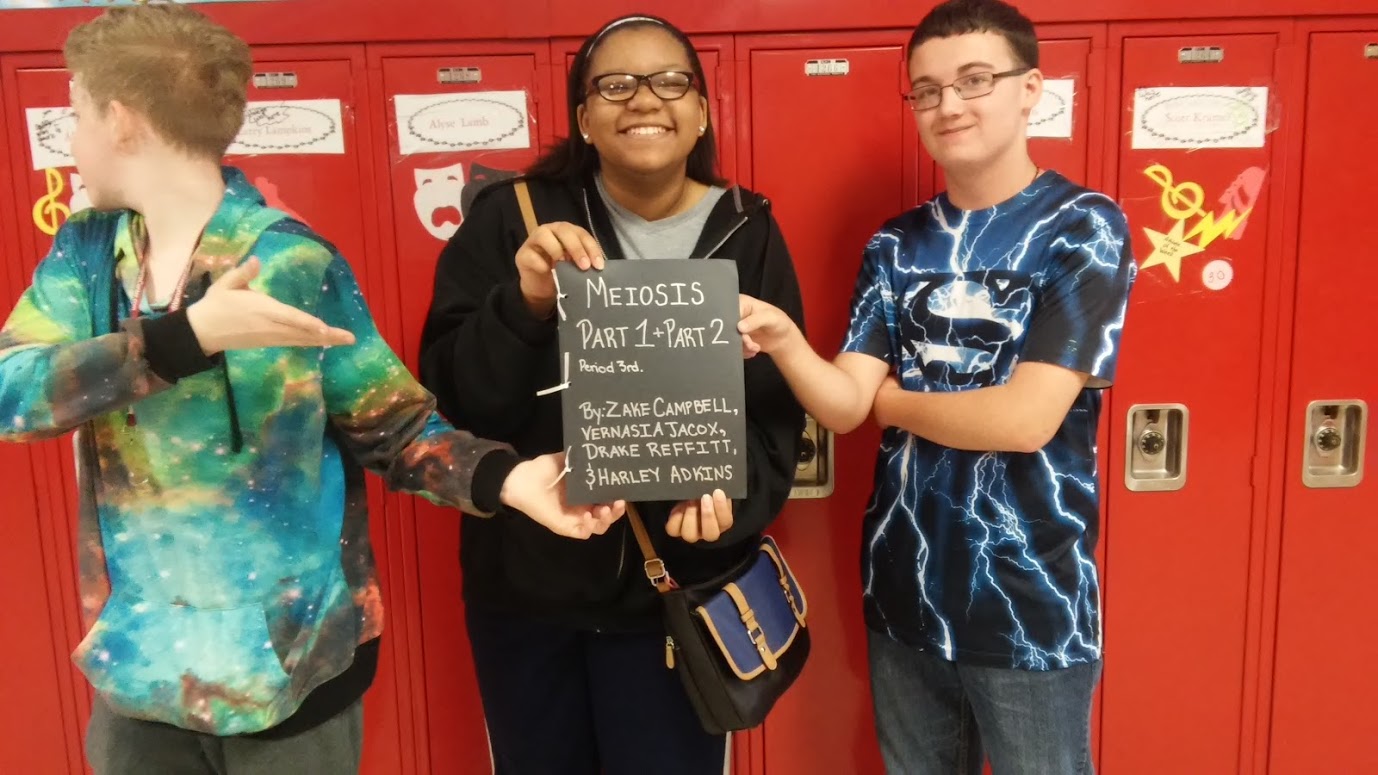 MEIOSIS
PART 1 + PART 2
Period 3rd.
By: ZAKE CAMPBELL,
VERNASIA JACOX,
DRAKE REFFITT,
& HARLEY ADKINS
Lampkins
Alyse Lamb
Scott Kramer
S
30